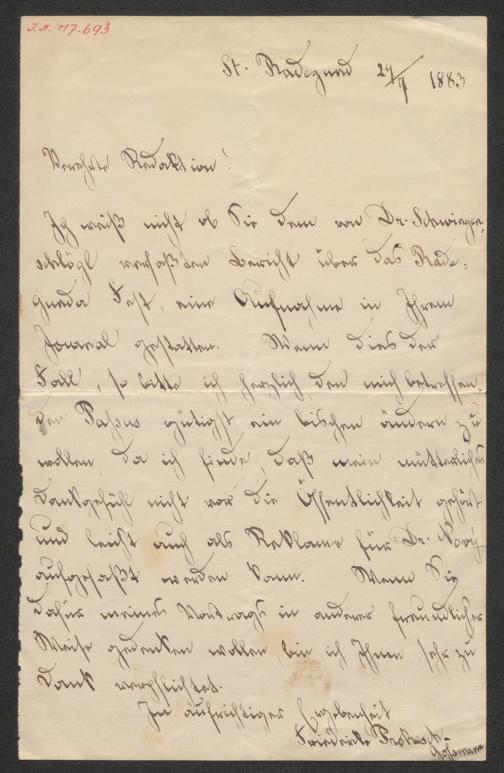 I.N. 117.693
St. Radegund 24/7 1883
Verehrte Redaktion!
Ich weiß nicht ob Sie dem von Dr.
verfaßten Bericht über das Rade-
gunda Fest, eine Aufnahme in Ihrem
Journal gestatten. Wenn dies der
Fall, so bitte ich herzlich, den mich betreffen-
den Passus gütigst ein bischen ändern zu
wollen, da ich finde, daß mein mütterliches
Dankgefühl nicht vor die Öffentlichkeit gehört
und leicht auch als Reklame für Dr. Novy
aufgefaßt werden kann. Wenn Sie
dafür meines Vortrags in anderer freundlicher
Weise gedenken wollen, bin ich Ihnen sehr zu
Dank verpflichtet.
In aufrichtiger Ergebenheit
Friederike Prokesch-
Goßmann